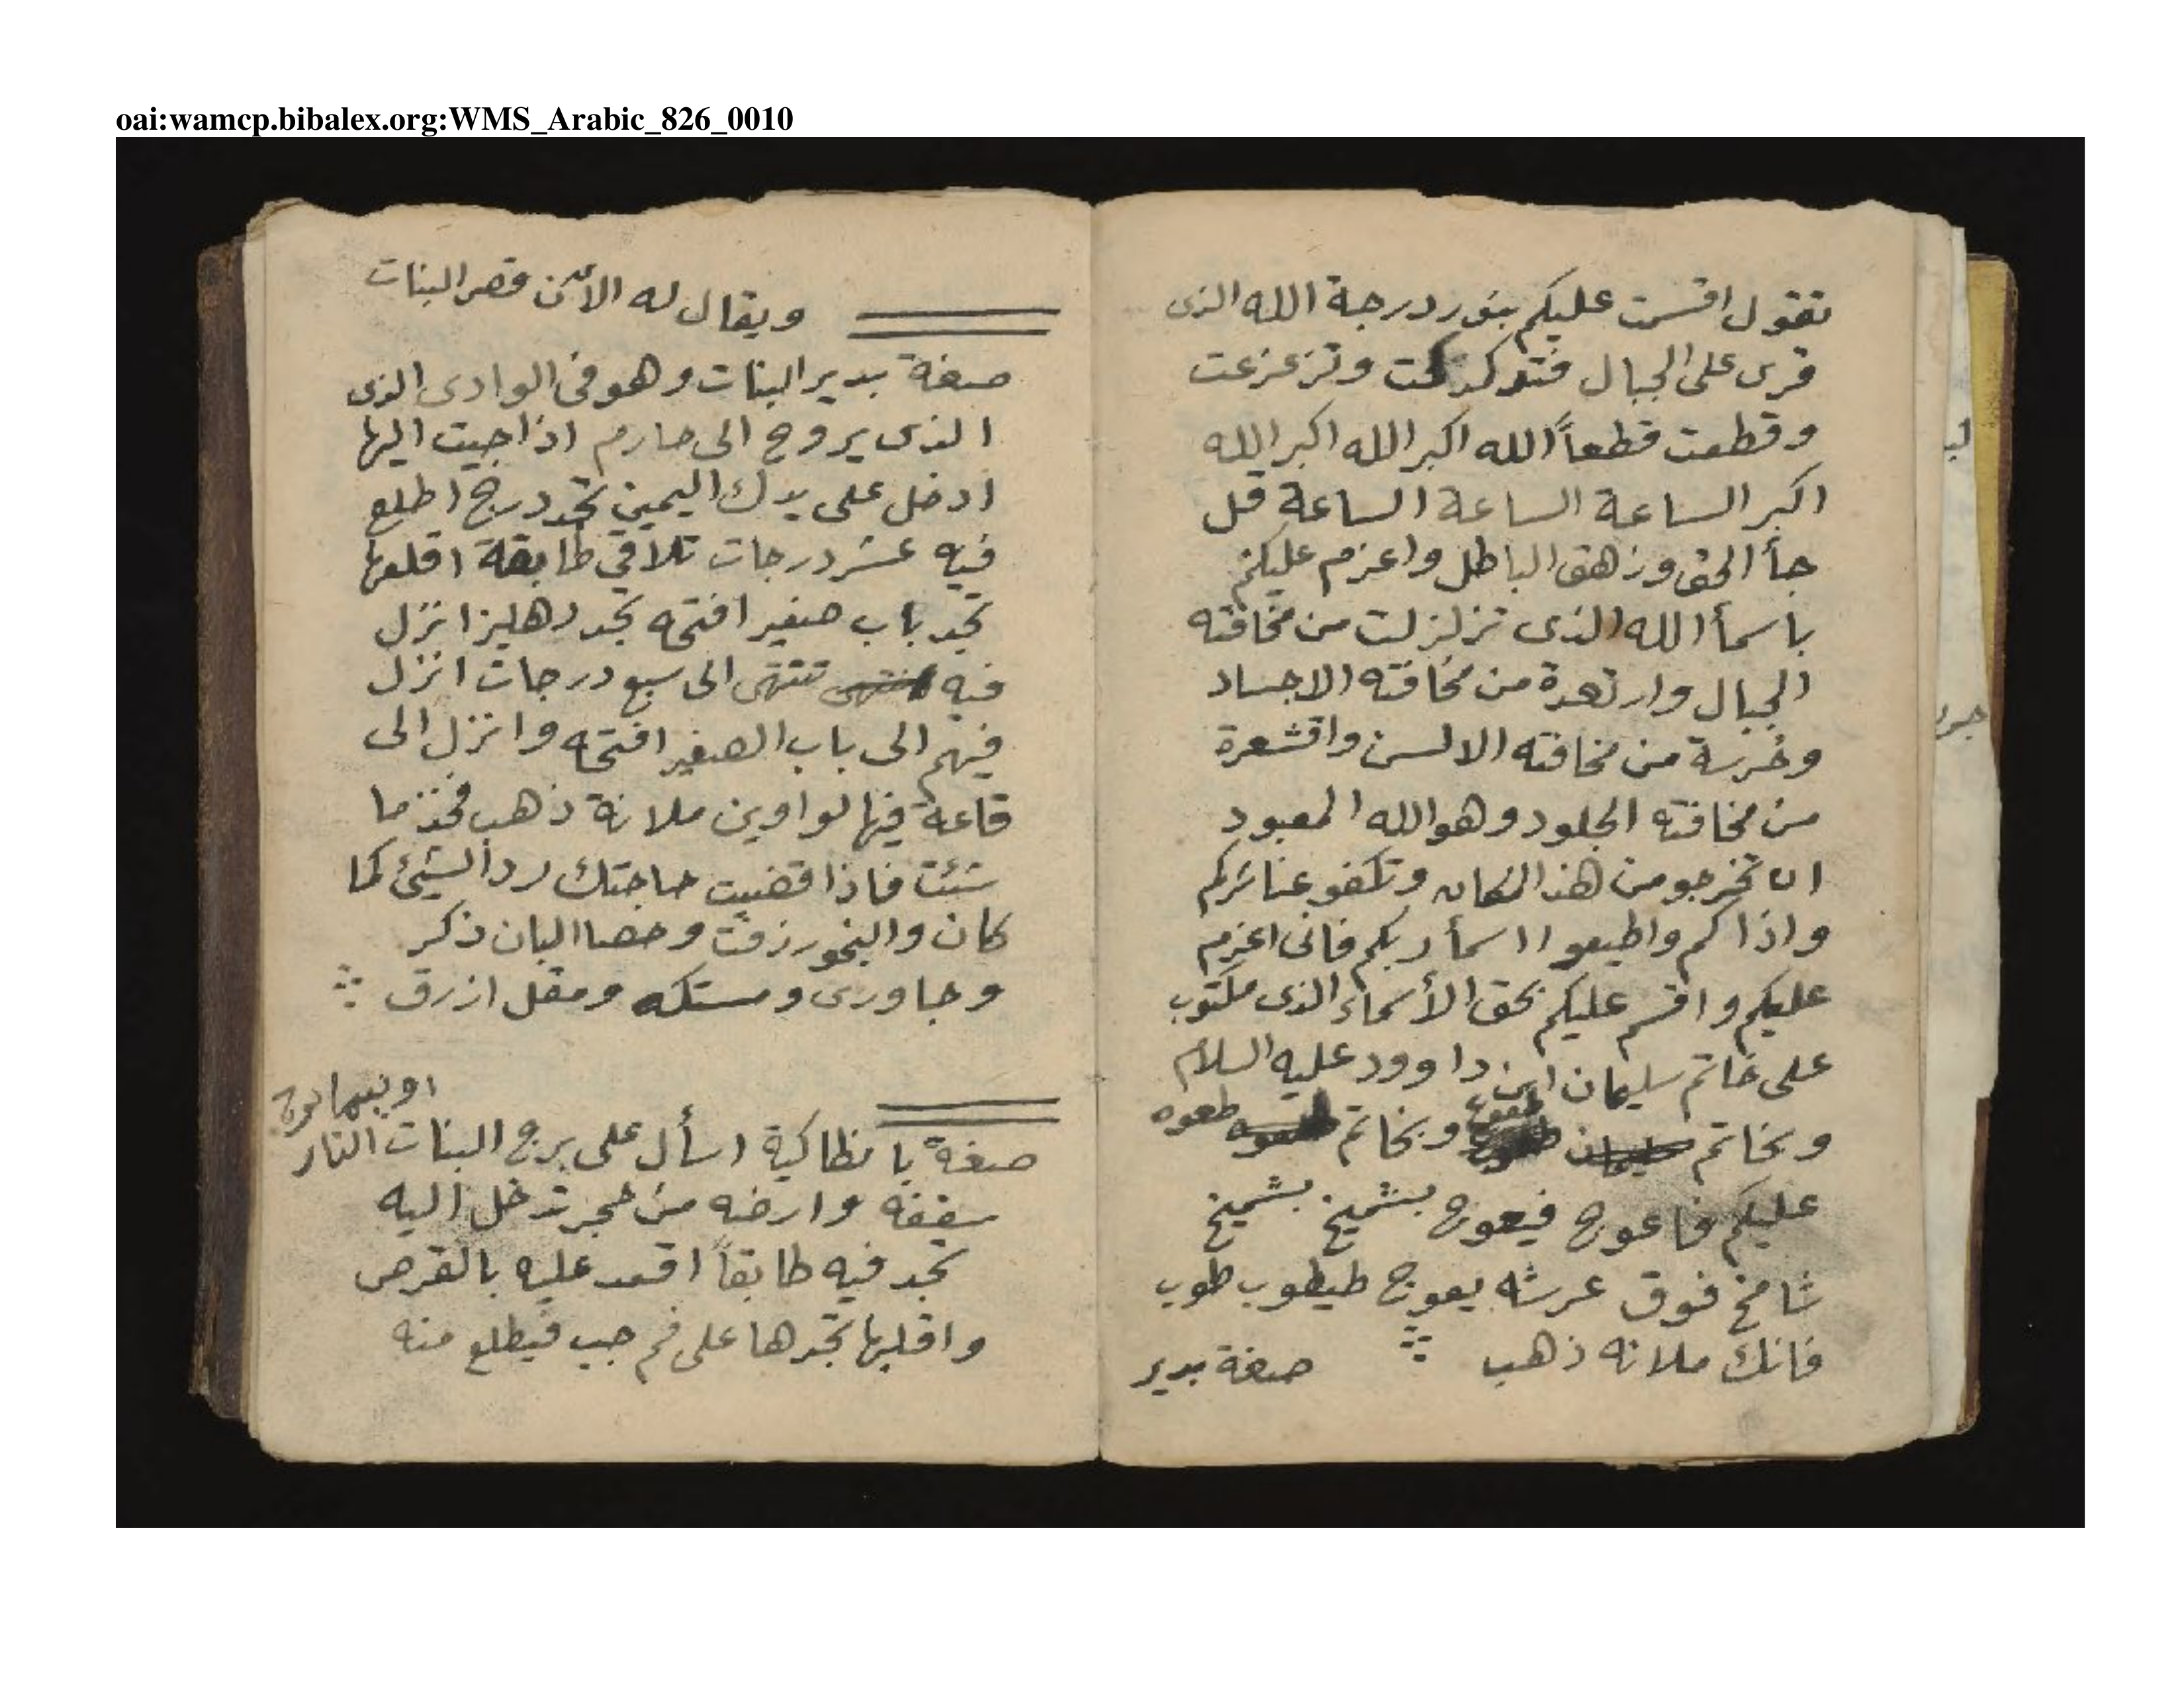 oai:wamcp.bibalex.org:WMS_Arabic_826_0010
تقول اقسمت عليكم بنور درجة الله الذى
قرى على الجبال فتدكدكت وتزعزعت
وقطعت قطعاً الله اكبر الله اكبر الله
اكبر الساعة الساعة الساعة قل
جأ الحق وزهق الباطل واعزم عليكم
باسمأ الله الذى تزلزلت من مخافته
الجبال وارتعدة من مخافته الاجساد
وخرسة من مخافته الالسن واقشعرة
من مخافته الجلود وهو الله المعبود
ان تخرجو من هذا المكان وتكفو عنا شركم
واذاكم واطيعوا اسمأ ربكم فانى اعزم
عليكم واقسم عليكم بحق الأسماء الذى مكتوب
على خاتم سليمان ابن داوود عليه السلام
وبخاتم وبخاتم طعوه
عليكم فاعوج فيعوج بشميخ بشميخ
شامخ فوق عرشه يعوج طيطوب طوب
فانك ملانه ذهب
صفة بدير
ويقال له الأن قصر البنات
صفة بدير البنات وهو فى الوادى الذى
الذى يروح الى حارم اذا جيت اليها
ادخل على يدك اليمين تجد درج اطلع
فيه عشر درجات تلاقي طابقة اقلعها
تجد باب صغير افتحه تجد دهليز انزل
فيه تنتهى الى سبع درجات انزل
فيهم الى باب الصغير افتحه وانزل الى
قاعة فيها لواوين ملانة ذهب فخذ ما
شئت فاذا قضيت حاجتك رد الشيئ كما
كان والبخور زفت وحصا البان ذكر
وجاورى ومستكه ومقل ازرق
صفة بانطاكية اسأل على برج البنات النار
سقفه وارضه من حجر تدخل اليه
تجد فيه طابقاً اقعد عليه بالقرص
واقلبها تجدها على فم جب فيطلع منه